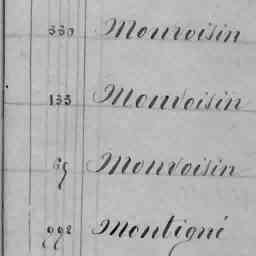 330 Monvoisin
133 Monvoisin
65 Monvoisin
992 Montigné